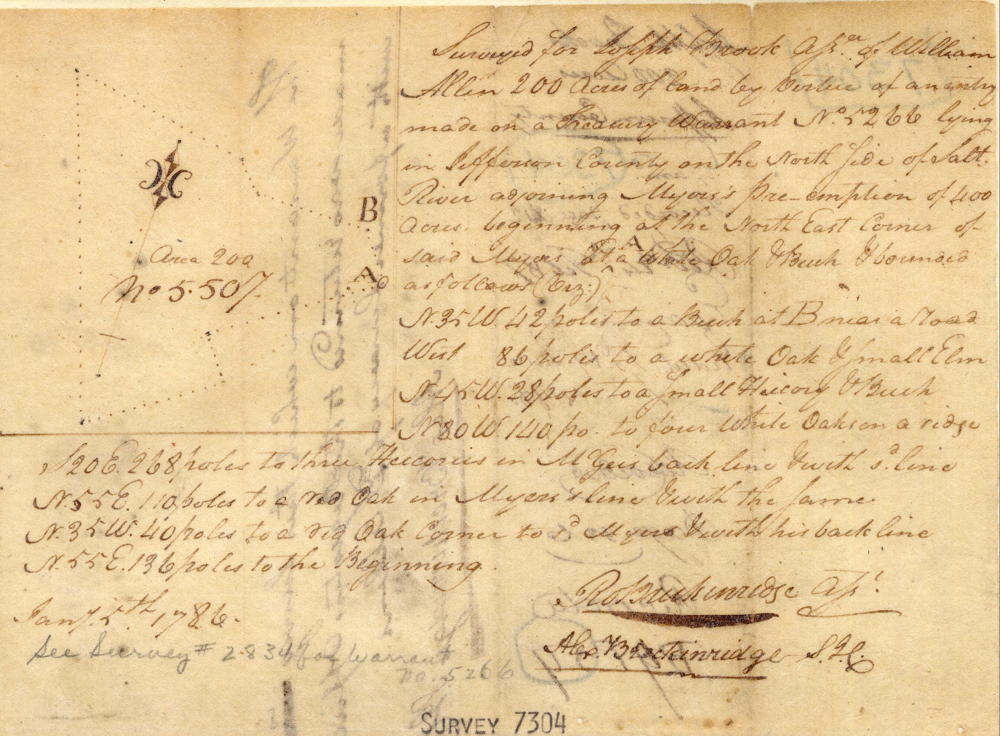 Surveyed for Joseph Brook Assee. of William
Allin 200 Acres of land by Virtue of an entry
made on a Treasury Warrant No. 5266 lying
in Jefferson County on the North Side of Salt
River adjoining Myers's Pre-emption of 400
Acres beginning at the North East Corner of
said Myers at a White Oak & Beech & bounded
as follows (Viz:)
N. 35 W. 42 poles to a Beech at B near a road
West 86 poles to a white Oak & Small Elm
N. 45 W. 28 poles to a Small Hickory & Beech
N 80 W. 140 po. to four White Oaks on a ridge
S 20 E. 268 poles to three Hiccories in McGees back line & with sd. line
N. 55 E. 110 poles to a red Oak in Myers's line & with the same
N. 35 W. 40 poles to a red Oak Corner to sd Myers & with his back line
N. 55 E. 136 poles to the Beginning.
Jany. 5th 1786.
Ro Breckinridge Asst.
Alex Breckinridge S.J.C.
B
A
A
Area 200
No 5.507
See Survey # 2834 for Warrant
no. 5266
SURVEY 7304